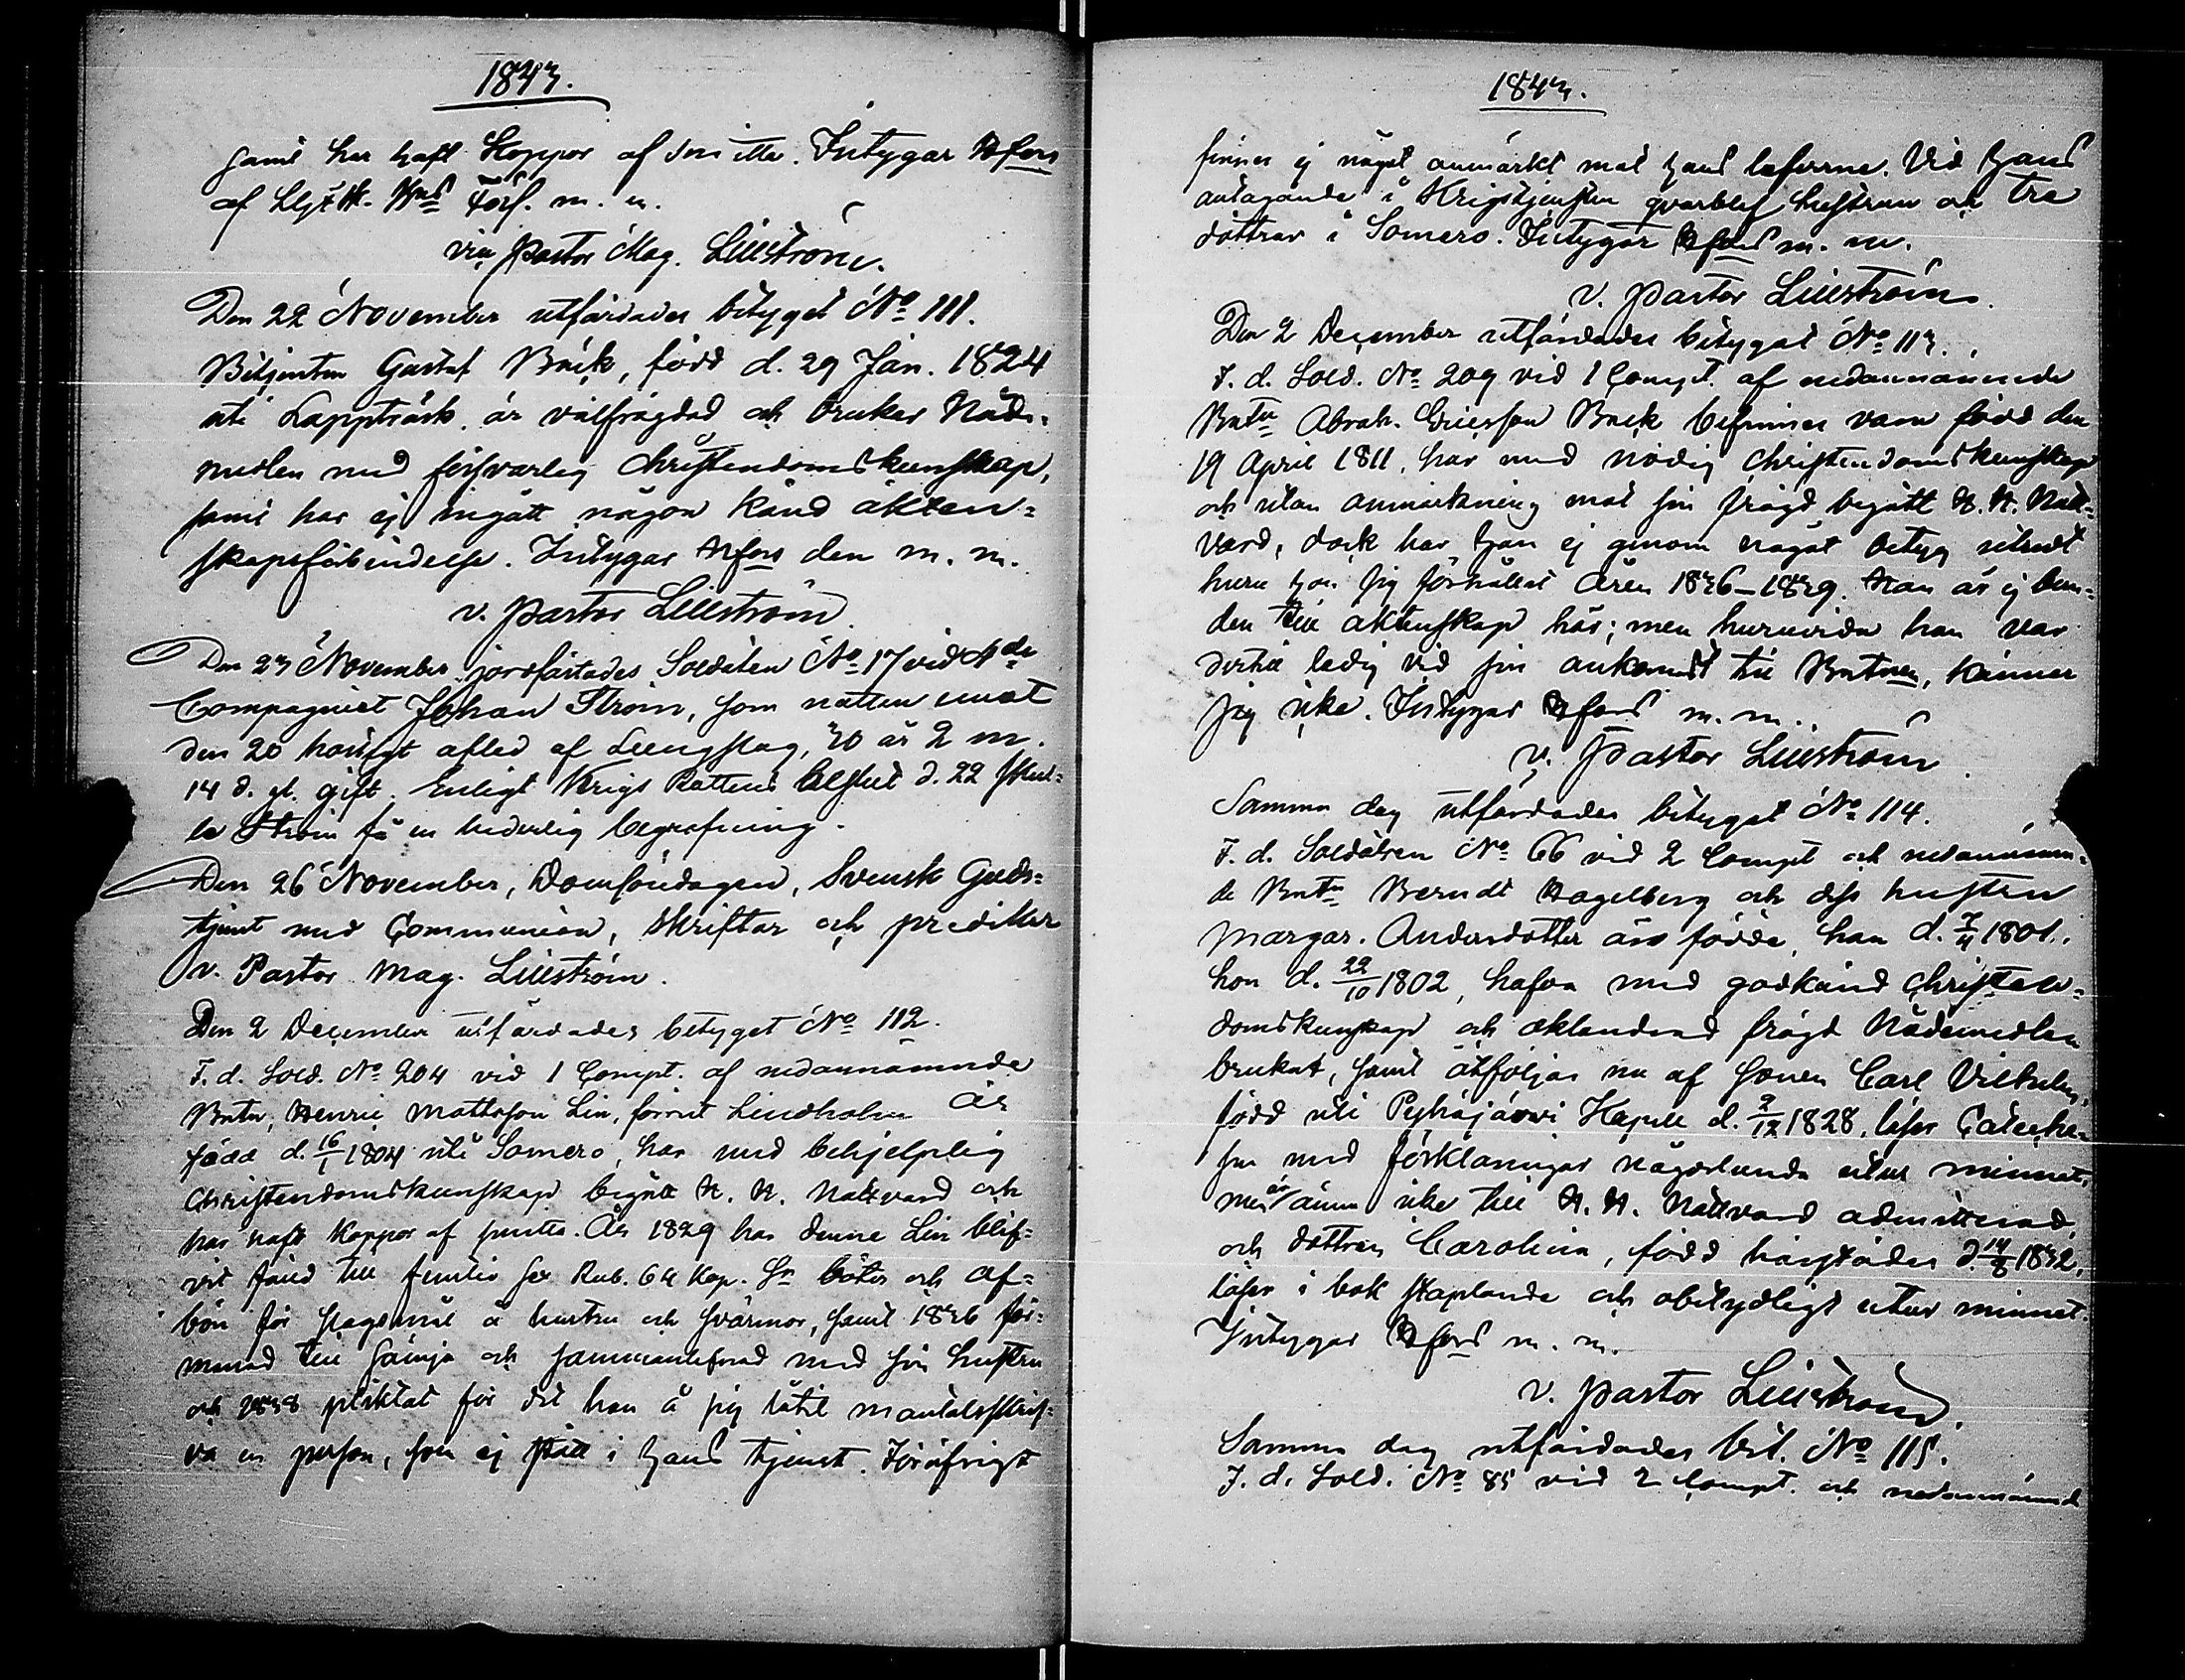 1843.
samt har haft Koppor af smitta. Intygar Hfors
af
vice Pastor Mag. Lilliström.
Den 22 November utfärdades betyget No 111.
Betjenten Gustaf Bäck, född d. 29 Jan. 1824
uti Lappträsk, är välfrägdad och brukar Nåde-
medlen med försvarlig Christendomskunskap,
samt har ej ingått någon känd äkten-
skapsförbindelse. Intygar Hfors den m. m.
v. Pastor Lilliström.
Den 23 November jordfästades Soldaten No 17 vid 4de
Compagniet Johan Ström, som natten emot
den 20 hastigt afled af Lungslag, 30 år 2 m.
14 d. gl. gift. Enligt Krigs Rättens beslut d. 22 skul-
le Ström få en hederlig begrafning.
Den 26 November, Domsöndagen, Svensk Guds-
tjenst med Communion, skriftar och predikar
v. Pastor Mag. Lilliström.
Den 2 December utfärdades betyget No 112.
F. d. Sold. No 204 vid 1 Compt. af nedannämnde
Batn, Henric Mattsson Lin, förrut Lindholm är
född d. 16/1 1804 uti Somero, har med behjelplig
Christendomskunskap begått H. H. Nattvard och
har haft Koppor af smitta. År 1829 har denne Lin blif-
vit fälld till femtio sex Rub. 64 Kop. Sr böter och af-
bön för slagsmål å hustru och svärmor, samt 1836 för-
manad till sämja och sammanlefnad med sin hustru
och 1838 pliktat för det han å sig låtit mantalsskrif-
va en person, som ej stått i hans tjenst. Föröfrigt
1843.
finnes ej något anmärkt mot hans lefverne. Vid hans
antagande i Krigstjensten qvarblef hustrun och tre
döttrar i Somero. Intygar Hfors m. m.
v. Pastor Lilliström.
Den 2 December utfärdades betyget No 113.
F. d. Sold. No 209 vid 1 Compt. af nedannämnde
Batn Abrah. Ericsson Bäck befinnes vara född den
19 April 1811, har med nödig Christendomskunskap
och utan anmärkning mot sin frägd begått H. H. Natt-
vard, dock har han ej genom något betyg utredt
huru han sig förhållit åren 1836–1839. Han är ej bun-
den till äktenskap här; men huruvida han var
dertill ledig vid sin ankomst till Batnen, känner
jag icke. Intygar Hfors m. m.
v. Pastor Lilliström.
Samma dag utfärdades betyget No 114.
F. d. Soldaten No 66 vid 2 Compt och nedannämn-
de Batn Berndt Hagelberg och dess hustru
Margar. Andersdotter äro födde, han d. 7/4 1801,
hon d. 22/10 1802, hafva med godkänd Christen-
domskunskap och oklandrad frägd Nådemedlen
brukat, samt åtföljas nu af sonen Carl Vilhelm,
född uti Pyhäjärvi Kapell d. 2/12 1828, läser Cateche-
sen med förklaringar någorlunda utur minnet,
men är ännu icke till H. H. Nattvard admitterad,
och dottren Carolina, född härstädes d. 14/8 1832,
läser i bok staplande och obetydligt utur minnet.
Intygar Hfors m. m.
v. Pastor Lilliström.
Samma dag utfärdades bet. No 115.
F. d. Sold. No 85 vid 2 Compt. och nedannämnd